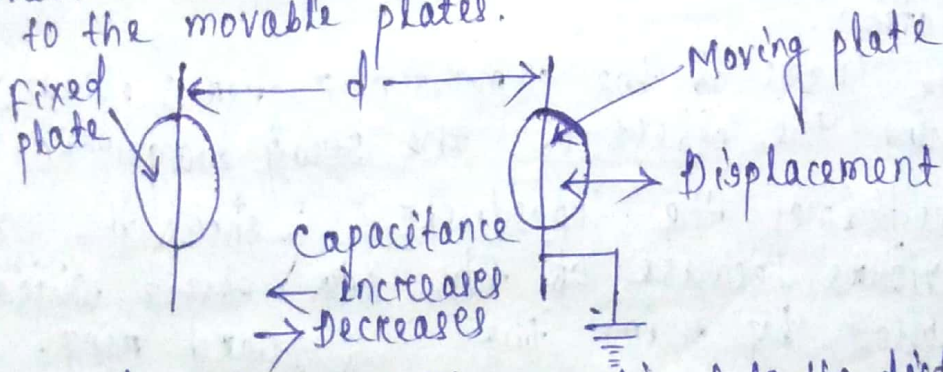 to the movable plates.
Fixed plate
d
Moving plate
Displacement
Capacitance
← increases
→ Decreases